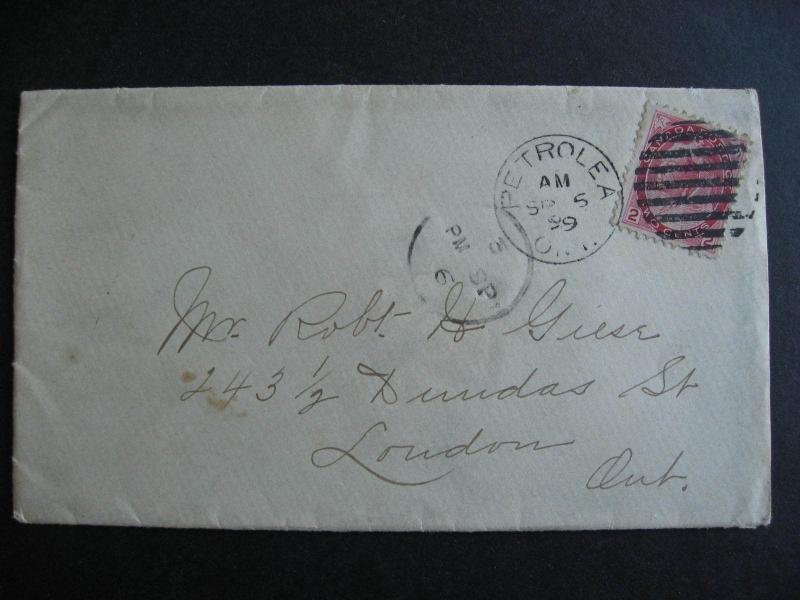 PETROLEA
AM
SP 5
99
ONT.
CANADA POSTAGE
2 TWO CENTS 2
PM SP 5
6
Mr. Robt. H Giese
243 1/2 Dundas St
London
Ont.